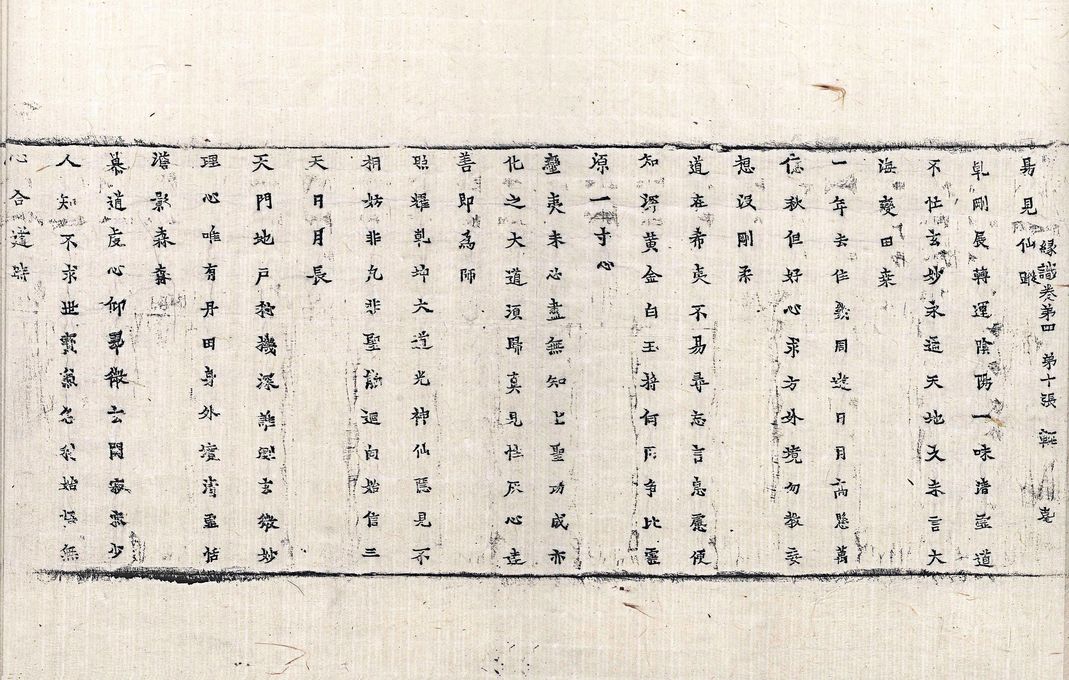 易見仙蹤
縁識卷第四 第十張
乹剛辰轉運陰陽一味清虛道
不任玄妙永遥天地久未言大
海變田桒
一年去住幾周遊日月高懸萬
億秋但好心求方外境勿教妄
想没剛柔
道在希夷不易尋忘言息慮便
知深黄金白玉將何用争比靈
源一寸心
蠻夷未必盡無知上聖功成亦
化之大道須歸真見性灰心達
善即為師
照耀乹坤大道光神仙隱見不
拘姑非凢非聖能迴向始信三
天日月長
天門地户於機深誰測玄微妙
理心唯有丹田身外境清靈恬
澹影森森
慕道虔心仰翠微玄關寂寞少
人知不求世寶兼忘我始悟無
心合道時